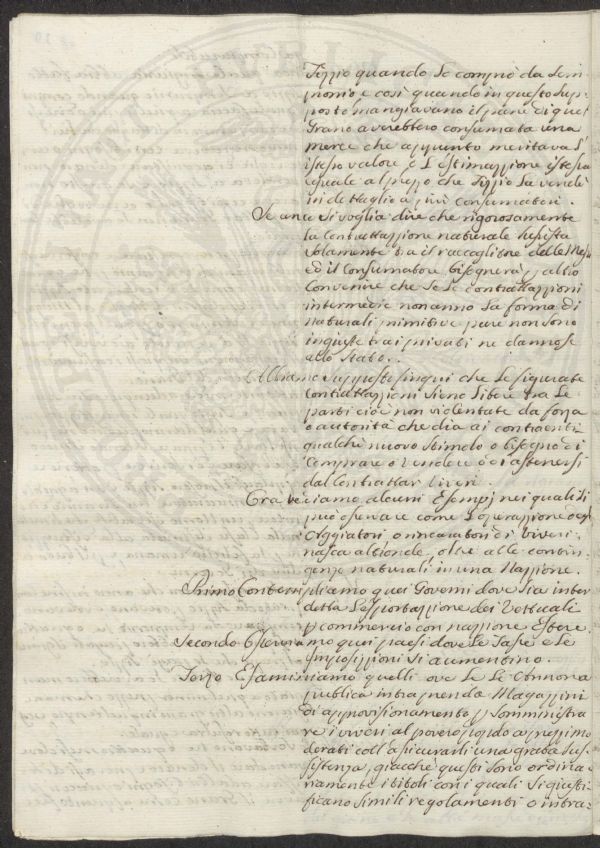 Tizzio quando le comprò da Sem
pronio e così quando in questo sup
posto mangiavano il pane di quel
Grano averebbero consumata una
merce che appunto meritava l'
istesso valore e l'estimazzione istessa
eguale al prezzo che Tizzio la vendè
in dettaglio a più consumatori.
Se anco si voglia dire che rigorosamente
la contrattazzione naturale sussista
solamente tra il raccoglitore delle Messi
ed il Consumatore, bisognerà p altro
convenire che se le contrattazzioni
intermedie non anno la forma di
naturali primitive pure non sono
ingiuste tra i privati ne dannose
allo Stato.
Abbiamo supposto sin qui che le figurate
contrattazzioni sieno libere tra le
parti cioè non violentate da forza
o autorità che dia ai contraenti
qualche nuovo stimolo o bisogno di
comprare o vendere o di astenersi
dal contrattar viveri.
Ora vediamo alcuni Esempi nei quali si
può osservare come l'operazzione degl'
Aggiatori, o rincaratori di viveri
nasca altronde, oltre alle contin
genze naturali in una Nazzione.
Primo Contempliamo quei Governi dove sia inter
detta l'esportazzione dei Vettuvali
p commercio con nazzione Estere.
Secondo Osserviamo quei paesi dove le Tasse e le
Imposizzioni si aumentino.
Terzo Esaminiamo quelli ove le Annona
publica intraprenda Magazzini
di approvisionamento p somministra
re i viveri al povero popolo a prezzi mo
derati coll'assicurarli una grata sus
sistenza, giacchè questi sono ordina
riamente i titoli con i quali si giusti
ficano simili regolamenti o intra-